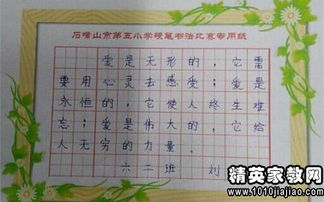 石嘴山市第五小学硬笔书法比赛专用纸
爱是无形的，它需
要用心灵去感受；爱是
永恒的，它使人终生难
忘；爱是伟大的，它给
人无穷的力量。
六二班 刘
精英家教网
www.1010jiajiao.com